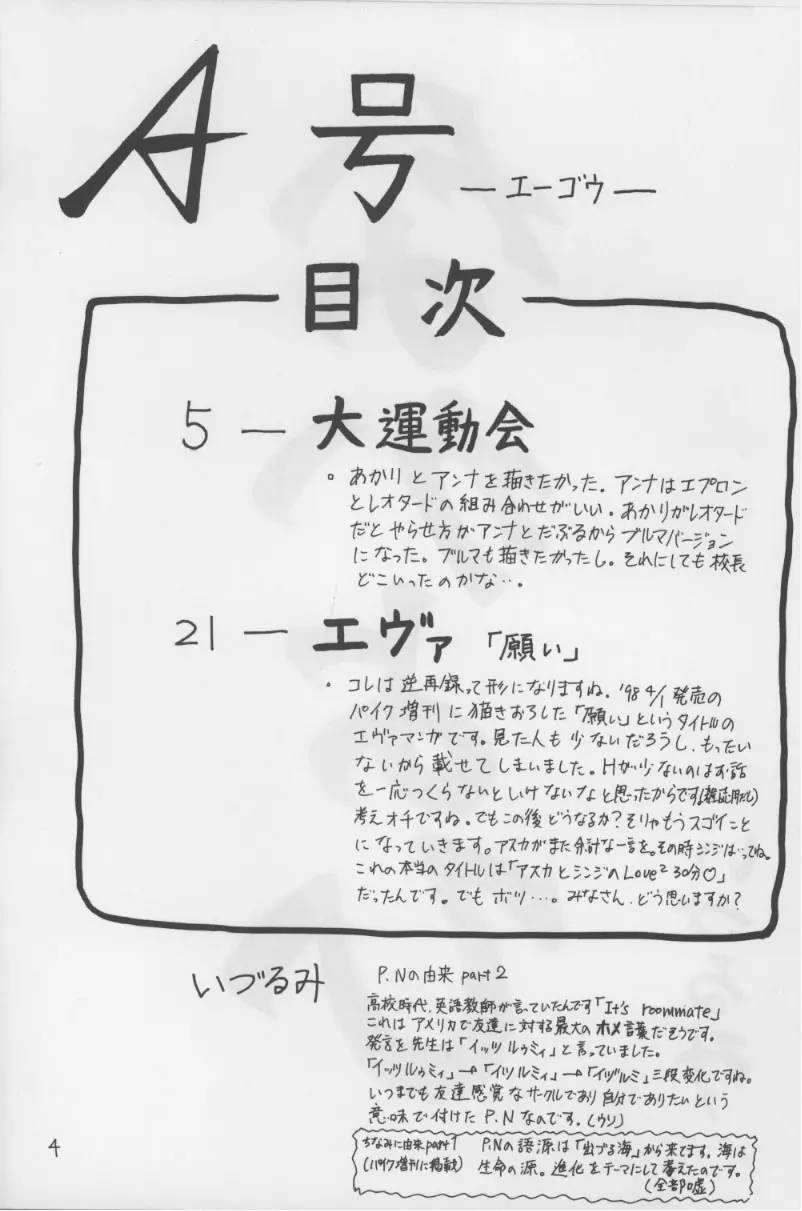 A号 ―エーゴウ―
目次
5 ― 大運動会
。あかりとアンナを描きたかった。アンナはエプロン
とレオタードの組み合わせがいい。あかりがレオタード
だとやらせ方がアンナとだぶるからブルマバージョン
になった。ブルマも描きたかったし。それにしても校長
どこいったのかな…。
21 ― エヴァ「願い」
・コレは逆再録って形になりますね。'98 4/1発売の
パイク増刊に描きおろした「願い」というタイトルの
エヴァマンガです。見た人も少ないだろうし、もったい
ないから載せてしまいました。Hが少ないのはお話
を一応つくらないといけないなと思ったからです
考えオチですね。でもこの後どうなるか?そりゃもうスゴイこと
になっていきます。アスカがまた余計な一言を。その時シンジは…ってね。
これの本当のタイトルは「アスカとシンジのLove² 30分♡」
だったんです。でもボツ…。みなさん、どう思いますか?
いづるみ
P.Nの由来 part2
高校時代、英語教師が言っていたんです「It's roommate」
これはアメリカで友達に対する最大のホメ言葉だそうです。
発言を先生は「イッツ ルゥミィ」と言っていました。
「イッツルゥミィ」→「イツルミィ」→「イヅルミ」三段変化ですね。
いつまでも友達感覚なサークルであり自分でありたいという
意味で付けたP.Nなのです。(ウソ)
ちなみに由来part1
(パイク増刊に掲載)
P.Nの語源は「出づる海」から来てます。海は
生命の源。進化をテーマにして考えたのです。
(全部嘘)
4